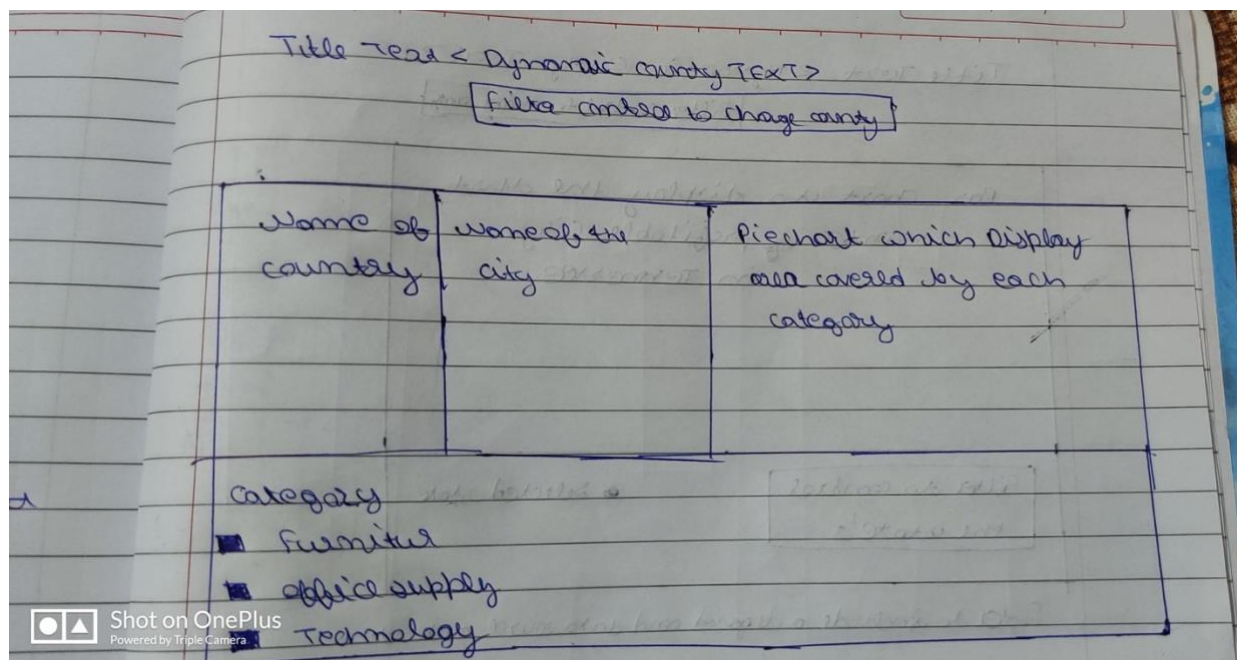 Title Text < Dynamic country TEXT>
Filter control to change county
Name of
country
Name of the
city
Piechart which Display
area covered by each
category
Category
Furnitur
office supply
Technology
Shot on OnePlus
Powered by Triple Camera